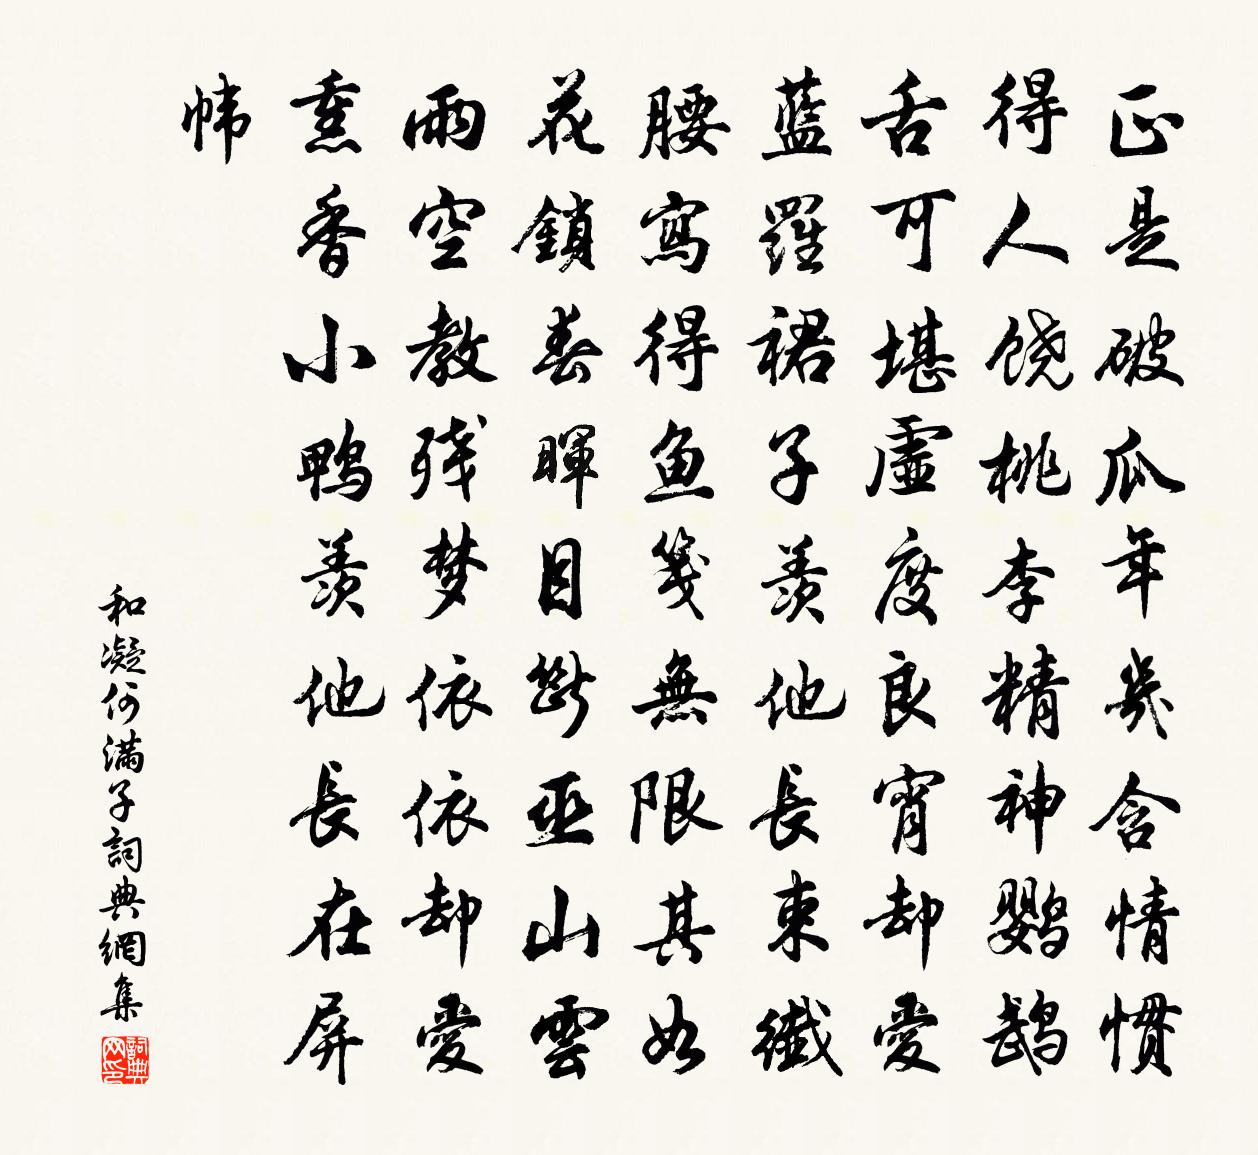 正是破瓜年幾含情慣
得人饒桃李精神鸚鵡
舌可堪虛度良宵却愛
藍羅裙子羨他長束纖
腰寫得魚箋無限其如
花鎖春暉目斷巫山雲
雨空教殘夢依依却愛
熏香小鴨羨他長在屏
幃
和凝何滿子詞典網集
詞典网印